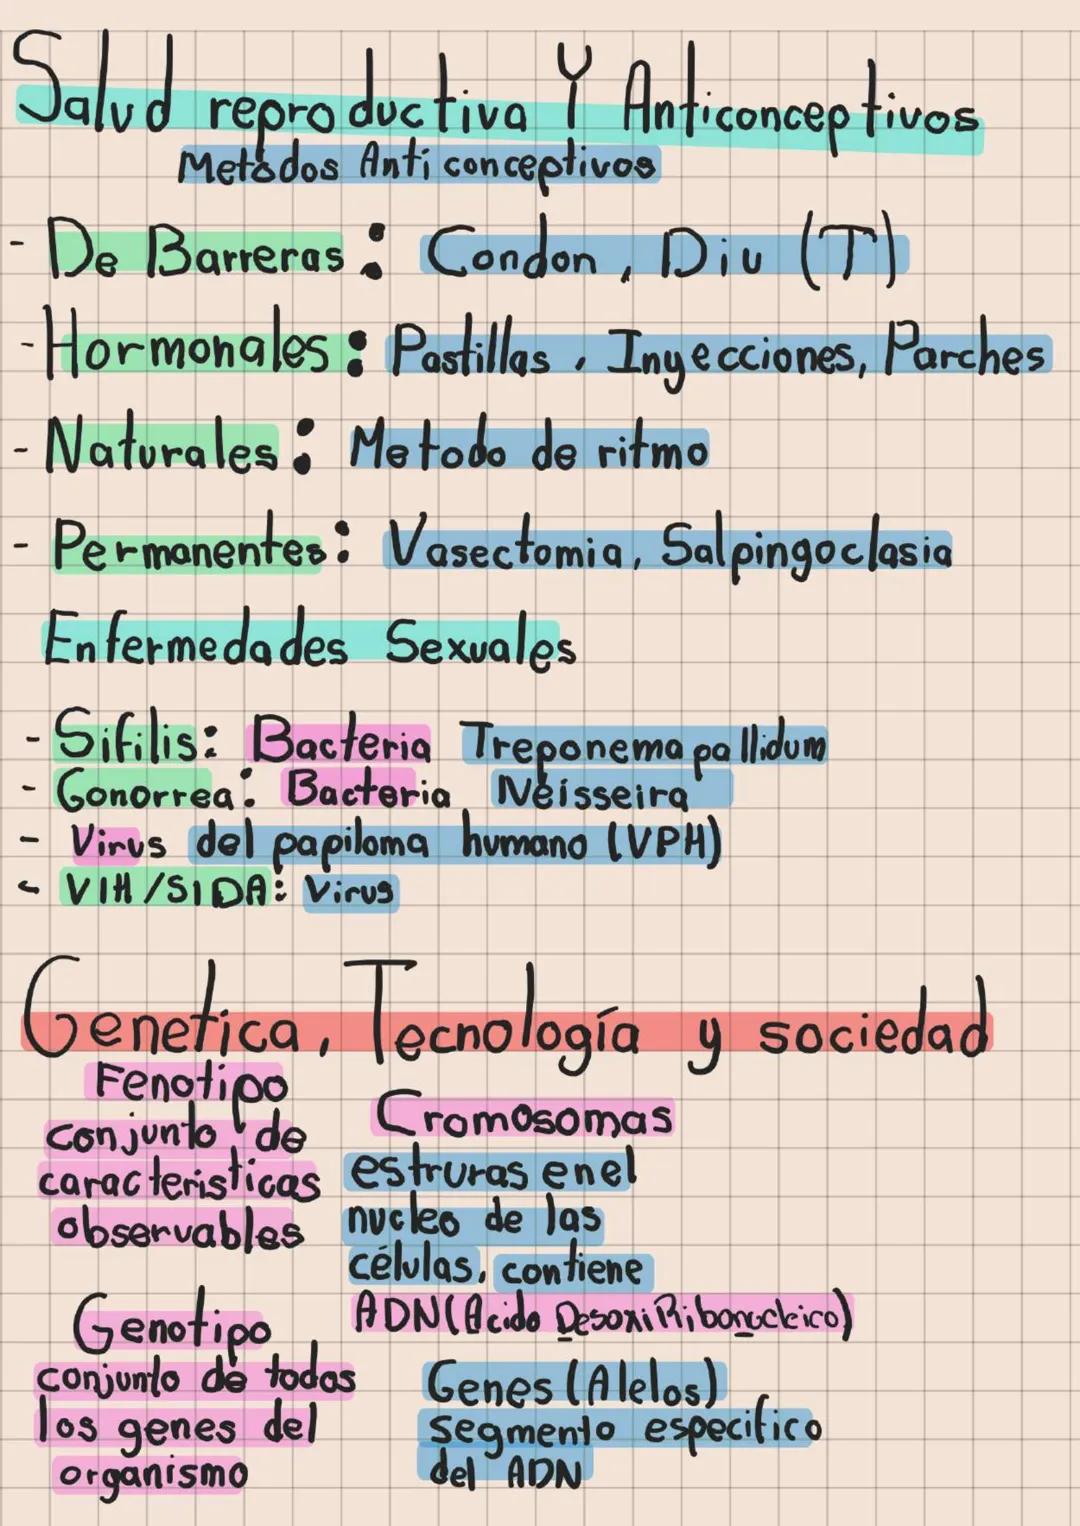 Salud reproductiva Y Anticonceptivos
Metódos Anti conceptivos
- De Barreras: Condon, Diu (T)
- Hormonales: Pastillas, Inyecciones, Parches
- Naturales: Metodo de ritmo
- Permanentes: Vasectomia, Salpingoclasia
Enfermedades Sexuales
- Sifilis: Bacteria Treponema pallidum
- Gonorrea: Bacteria Neisseira
- Virus del papiloma humano (VPH)
- VIH/SIDA: Virus
Genetica, Tecnología y sociedad
Fenotipo
conjunto de
caracteristicas
observables
Genotipo
conjunto de todos
los genes del
organismo
Cromosomas
estruras en el
nucleo de las
células, contiene
ADN (Acido DesoxiRibonucleico)
Genes (Alelos)
segmento especifico
del ADN